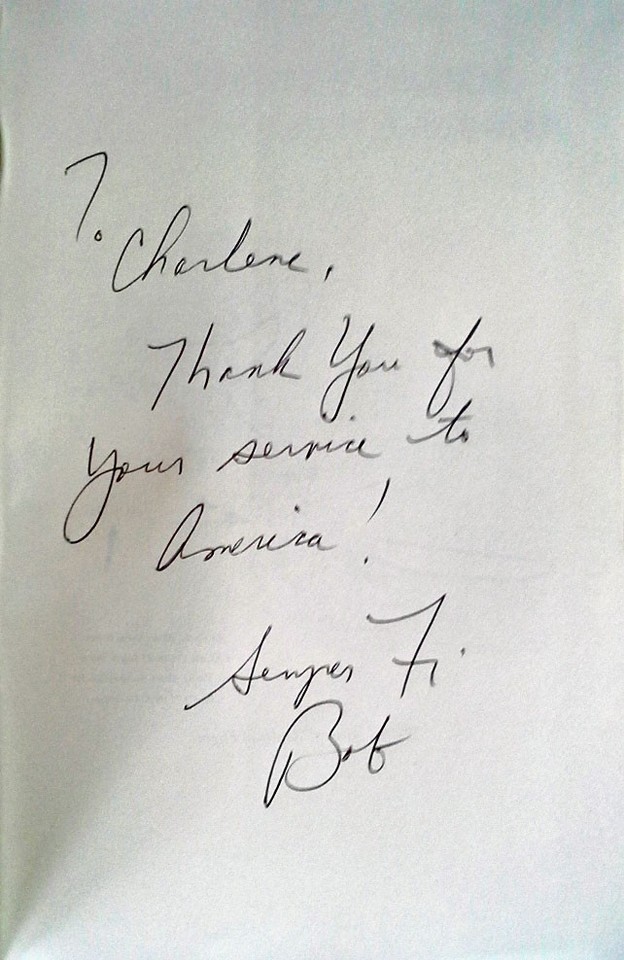 To
Charlene,
Thank You for
your service to
America!
Semper Fi
Bob